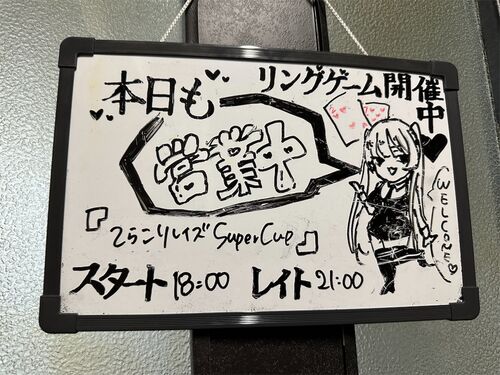 本日も
リングゲーム開催中
営業中
『てらこりレイズSuperCup』
WELCOME
スタート18:00 レイト21:00